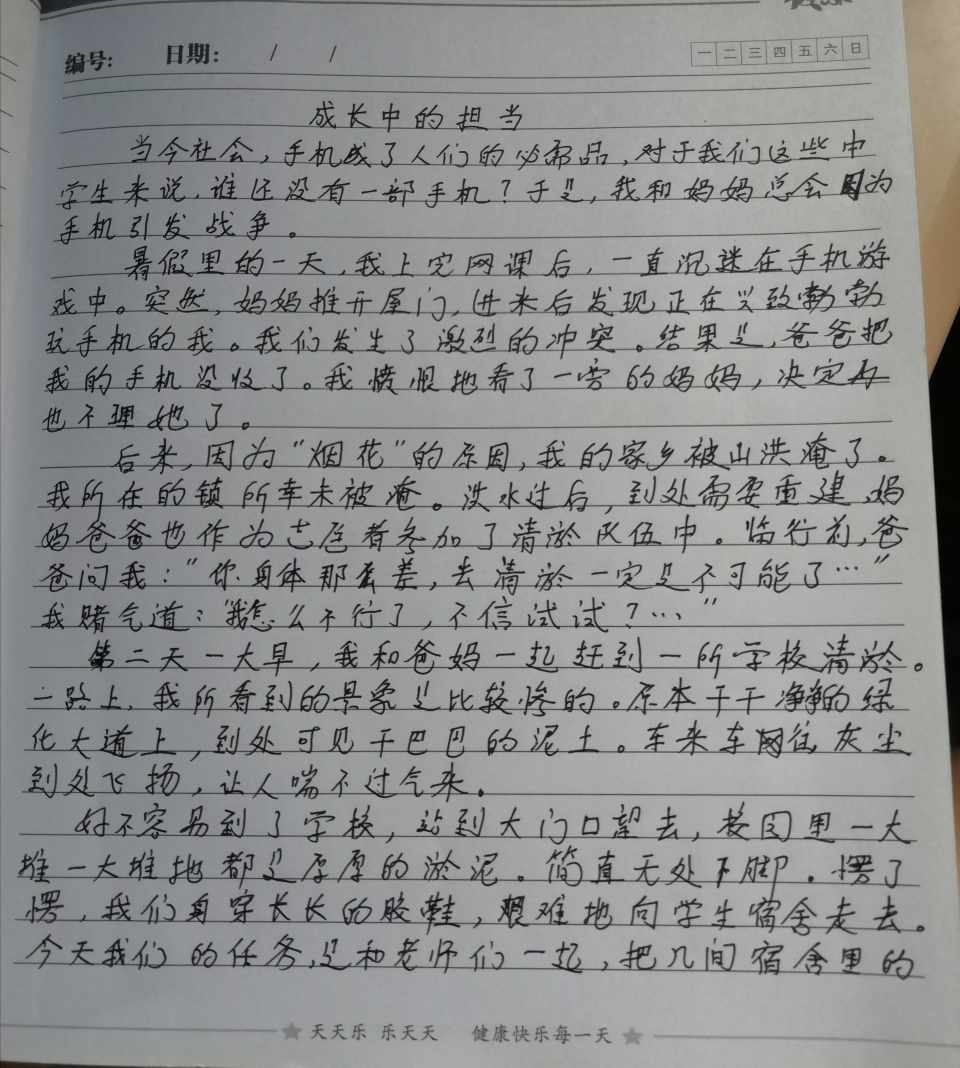 编号: 日期: / / 一 二 三 四 五 六 日
成长中的担当
当今社会,手机成了人们的必需品,对于我们这些中
学生来说,谁还没有一部手机?于是,我和妈妈总会因为
手机引发战争。
暑假里的一天,我上完网课后,一直沉迷在手机游
戏中。突然,妈妈推开屋门,进来后发现正在兴致勃勃
玩手机的我。我们发生了激烈的冲突。结果是,爸爸把
我的手机没收了。我愤恨地看了一旁的妈妈,决定再
也不理她了。
后来,因为“烟花”的原因,我的家乡被山洪淹了。
我所在的镇所幸未被淹。洪水过后,到处需要重建,妈
妈爸爸也作为志愿者参加了清淤队伍中。临行前,爸
爸问我:“你身体那么差,去清淤一定是不可能了…”
我赌气道:“我怎么不行了,不信试试?…”
第二天一大早,我和爸妈一起赶到一所学校清淤。
一路上,我所看到的景象是比较惨的。原本干干净净的绿
化大道上,到处可见干巴巴的泥土。车来车往,灰尘
到处飞扬,让人喘不过气来。
好不容易到了学校,站到大门口望去,校园里一大
堆一大堆地都是厚厚的淤泥。简直无处下脚。愣了
愣,我们身穿长长的胶鞋,艰难地向学生宿舍走去。
今天我们的任务,是和老师们一起,把几间宿舍里的
天天乐 乐天天 健康快乐每一天